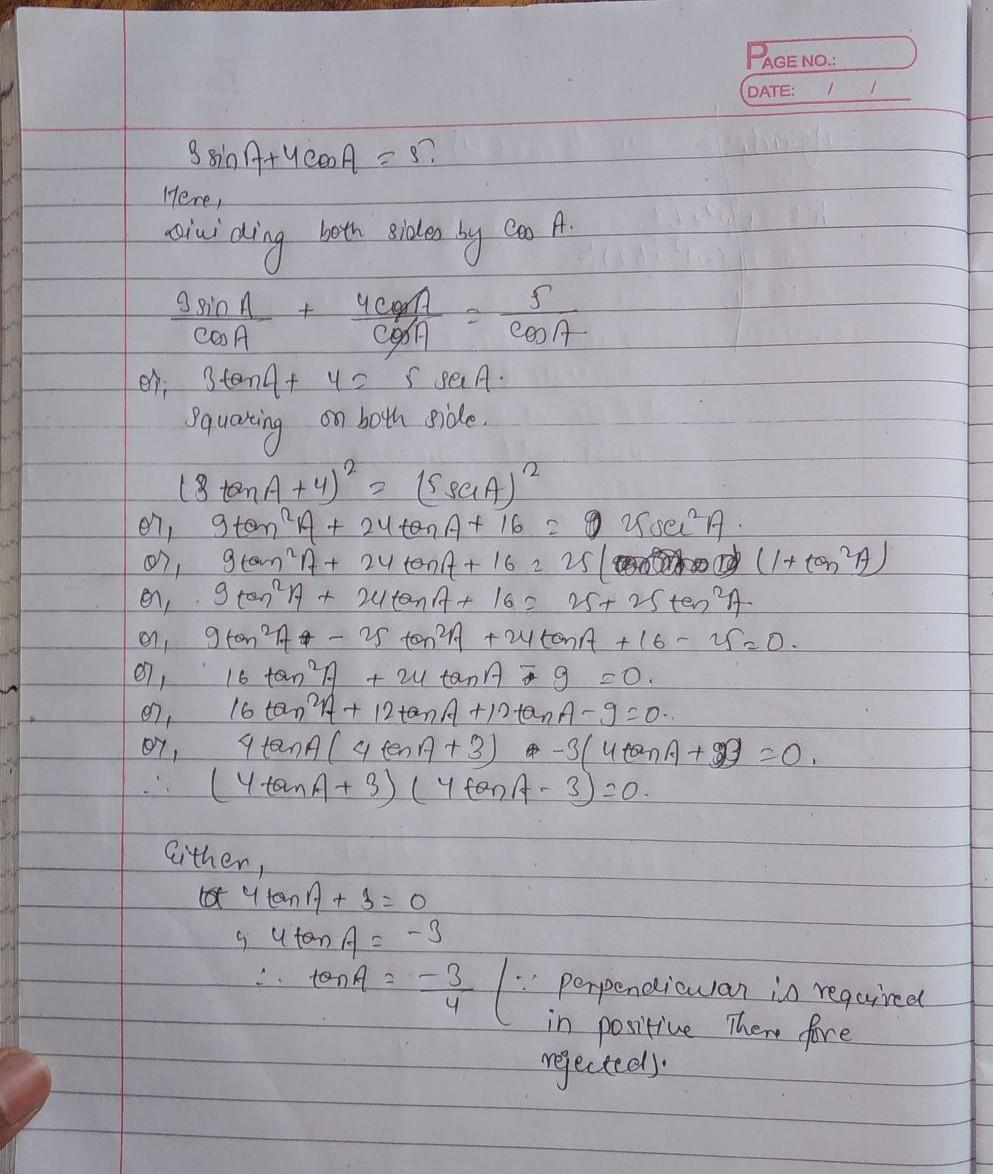 PAGE NO.:
DATE: / /
3 sin A + 4 cos A = 5.
Here,
Dividing both sides by cos A.
3 sin A / cos A + 4 cos A / cos A = 5 / cos A
or, 3 tan A + 4 = 5 sec A.
Squaring on both side.
(3 tan A + 4)² = (5 sec A)²
or, 9 tan² A + 24 tan A + 16 = 25 sec² A.
or, 9 tan² A + 24 tan A + 16 = 25 (1 + tan² A)
or, 9 tan² A + 24 tan A + 16 = 25 + 25 tan² A.
or, 9 tan² A - 25 tan² A + 24 tan A + 16 - 25 = 0.
or, 16 tan² A + 24 tan A - 9 = 0.
or, 16 tan² A + 12 tan A + 12 tan A - 9 = 0.
or, 4 tan A (4 tan A + 3) - 3 (4 tan A + 3) = 0.
∴ (4 tan A + 3) (4 tan A - 3) = 0.
Either,
4 tan A + 3 = 0
4 tan A = -3
∴ tan A = -3/4 (∵ perpendicular is required
in positive There fore
rejected).